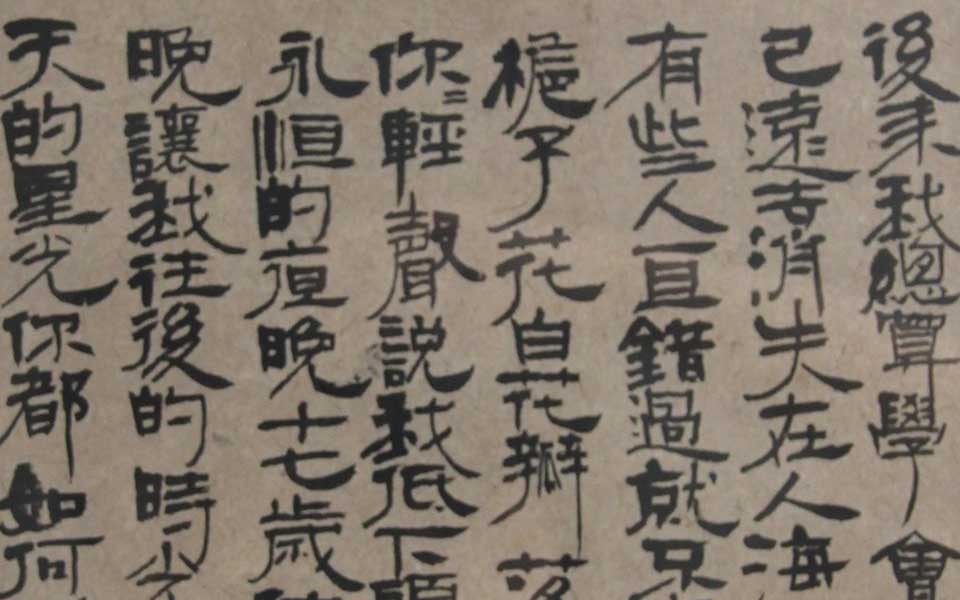 後来我總算學會
已遠去消失在人海
有些人一旦錯過就不
栀子花白花瓣落
你〻輕聲説我低下頭
永恒的夜晚十七歲
晚讓我往後的時光
天的星光你都如何